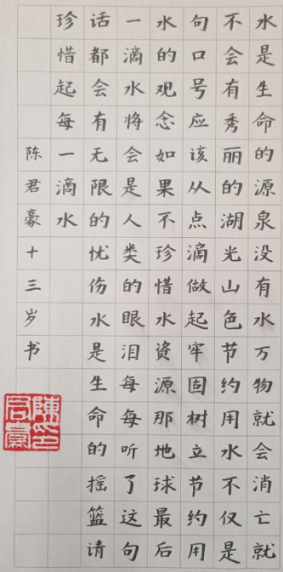 水是生命的源泉没有水万物就会消亡就
不会有秀丽的湖光山色节约用水不仅是
句口号应该从点滴做起牢固树立节约用
水的观念如果不珍惜水资源那地球最后
一滴水将会是人类的眼泪每每听了这句
话都会有无限的忧伤水是生命的摇篮请
珍惜起每一滴水
陈君豪十三岁书
陈印君豪